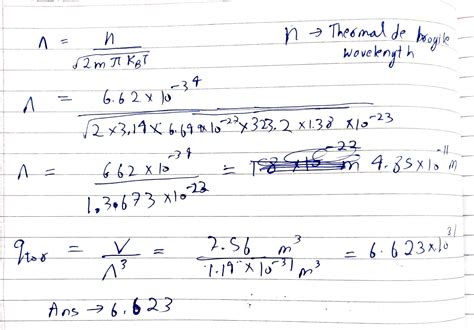 Λ = h / √2mπ K_BT    n → Thermal de brogile wavelength
Λ = 6.62 × 10^-34 / √2 × 3.14 × 6.64 × 10^-27 × 323.2 × 1.38 × 10^-23
Λ = 6.62 × 10^-34 / 1.3673 × 10^-23 = 4.85 × 10^-11 m
q_tor = V / Λ^3 = 2.56 m^3 / 1.14 × 10^-31 m^3 = 6.623 × 10^31
Ans → 6.623